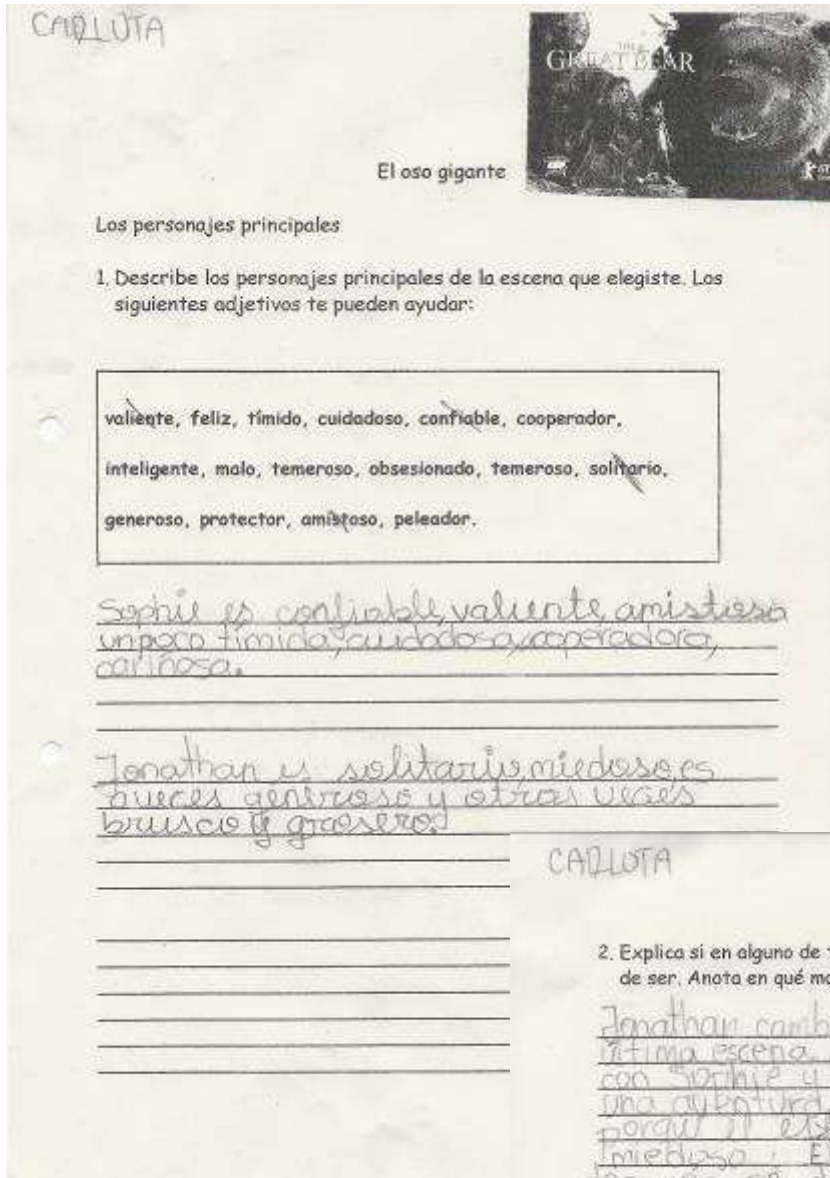 CARLOTA
THE
GREAT BEAR
El oso gigante
Los personajes principales
1. Describe los personajes principales de la escena que elegiste. Los
siguientes adjetivos te pueden ayudar:
valiente, feliz, tímido, cuidadoso, confiable, cooperador,
inteligente, malo, temeroso, obsesionado, temeroso, solitario,
generoso, protector, amistoso, peleador.
Sophie es confiable, valiente, amistosa
un poco tímida, cuidadosa, cooperadora,
cariñosa.
Jonathan es solitario, miedoso, es
aveces generoso y otras veces
brusco y grosero.
CARLOTA
2. Explica si en alguno de
de ser. Anota en qué mo
Jonathan camb
última escena
con Sophie y
una aventura
porque el
miedoso. E